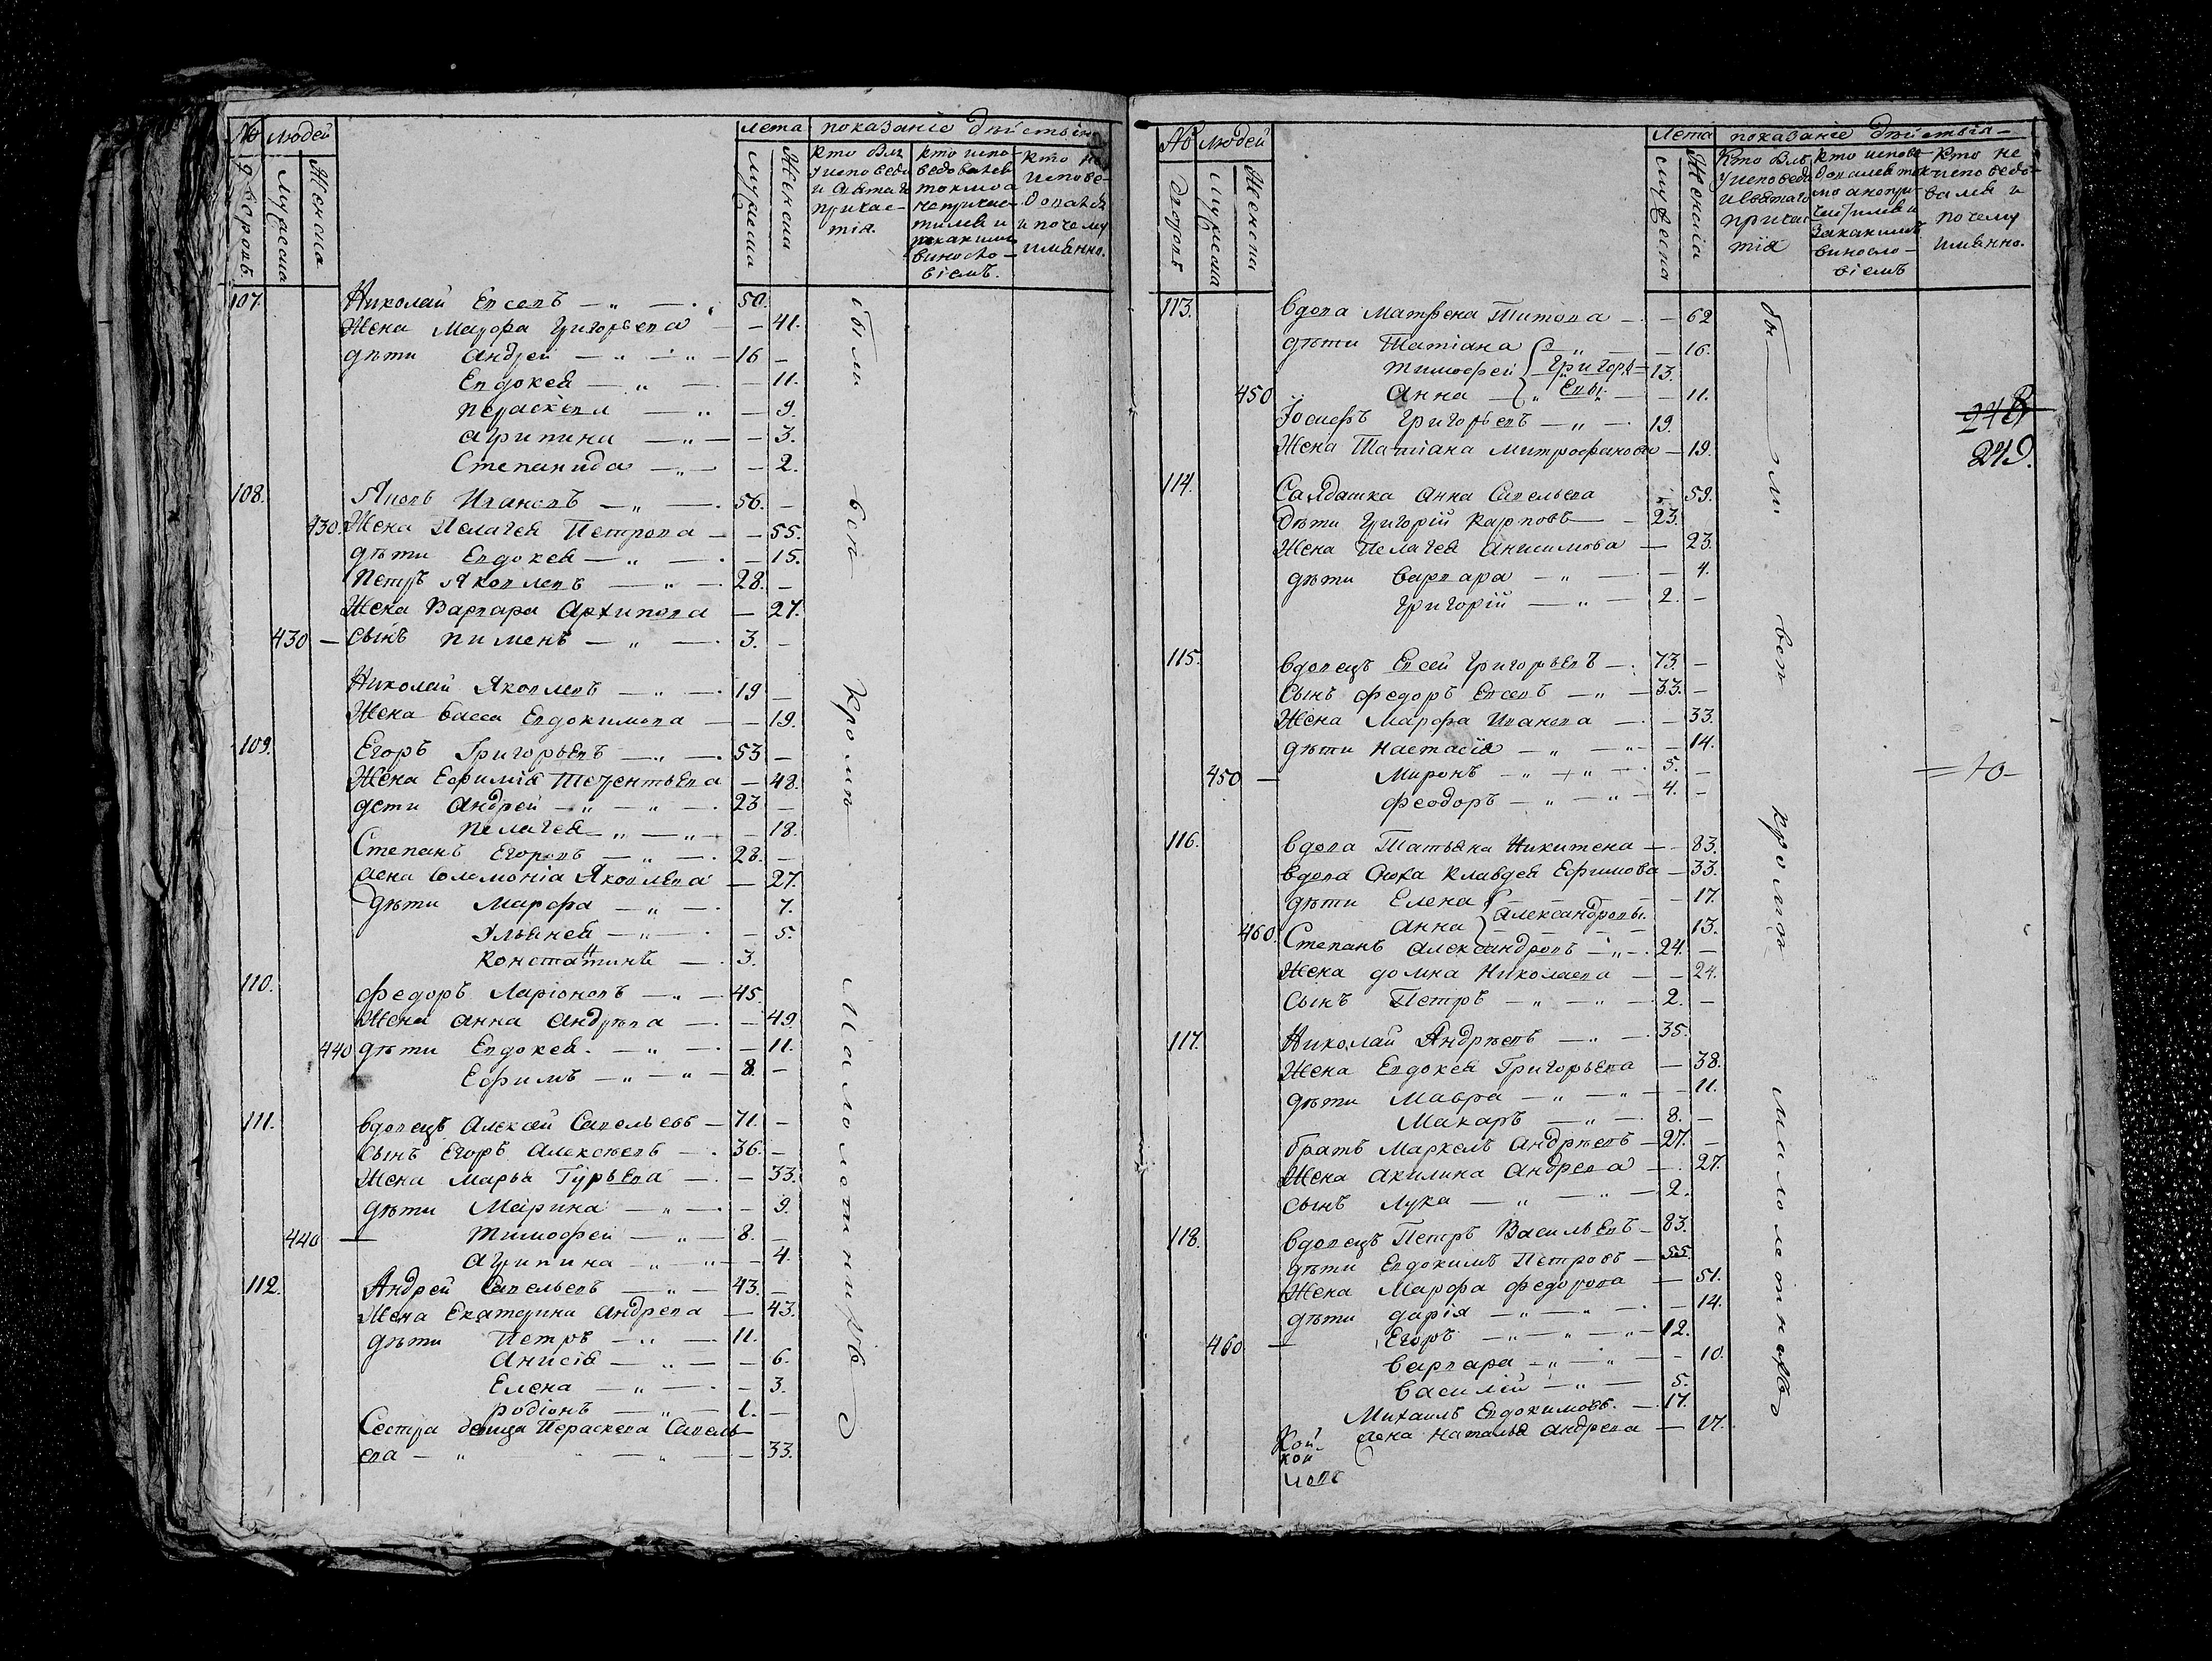 № людей лета показаніе действія
дворовъ. мужеска Женска мужеска Женска
кто былъ у исповеди и святаго причастія.
кто исповедовался токмо а непричастился и закакимъ винословіемъ.
кто не исповедовался и почему имянно.
107. Николай Евсевъ — 50.
Жена Марфа Григорьева — 41.
дѣти Андрей — 16 —
Евдокея — 11.
Параскева — 9.
Агрипина — 3.
Степанида — 2.
108. Яковъ Ивановъ — 56. —
430. Жена Пелагея Петрова — 55.
дѣти Евдокея — 15.
Петръ Яковлевъ — 28. —
Жена Варвара Архипова — 27.
430 — Сынъ Пименъ — 3. —
Николай Яковлевъ — 19 —
Жена Васса Евдокимова — 19.
109. Егоръ Григорьевъ — 53 —
Жена Ефимія Терентьева — 48.
дети Андрей — 23 —
Пелагея — 18.
Степанъ Егоровъ — 28. —
Жена Соломоніа Яковлева — 27.
Дѣти Марфа — 7.
Ульянея — 5.
Константинъ — 3.
110. Федоръ Ларіоновъ — 45.
Жена Анна Андрѣева — 49
440 дѣти Евдокея — 11.
Ефимъ — 8. —
111. Вдовецъ Алексей Савельевъ — 71. —
Сынъ Егоръ Алексѣевъ — 36. —
Жена Марья Гурьева — 33.
дѣти Марина — 9.
440 — Тимофей — 8. —
Агрипина — 4.
112. Андрей Савельевъ — 43. —
Жена Екатерина Андрева — 43.
дѣти Петръ — 11.
Анисія — 6.
Елена — 3.
Родіонъ — 1. —
Сестра девица Параскева Савель-
ева — 33.
были всѣ кромѣ малолетнихъ
№ людей Лета показаніе действія
дворовъ мужеска Женска мужеска Женска
Кто былъ у исповеди и святаго причастія
кто исповедовался токмо а непричастился и закакимъ винословіемъ
кто не исповедовался и почему имянно.
113. Вдова Матрена Титова — 62
дѣти Татіана — 16.
Тимофей Григорь- 13.
450 Анна евы — 11.
Іосифъ Григорьевъ — 19.
Жена Татіана Митрофанова — 19.
248
249.
114. Салдатка Анна Савельева — 59.
Дѣти Григорій Карповъ — 23.
Жена Пелагея Анисимова — 23.
дѣти Варвара — 4.
Григорій — 2. —
115. Вдовецъ Евсей Григорьевъ — 73. —
Сынъ Федоръ Евсевъ — 33. —
Жена Марфа Иванова — 33.
дѣти Настасія — 14.
450 — Миронъ — 5. —
Феодоръ — 4. —
116. Вдова Татьяна Никитена — 83.
Вдова Сноха Клавдея Ефимова — 33.
дѣти Елена — 17.
460. Анна Александровы. 13.
Степанъ Александровъ — 24. —
Жена Домна Николаева — 24.
Сынъ Петръ — 2. —
117. Николай Андрѣевъ — 35.
Жена Евдокея Григорьева — 38.
дѣти Мавра — 11.
Макаръ — 8. —
братъ Маркелъ Андрѣевъ — 27. —
Жена Акилина Андрева — 27.
Сынъ Лука — 2.
118. Вдовецъ Петръ Васильевъ — 83.
дѣти Евдокимъ Петровъ — 55.
Жена Марфа Федорова — 51.
дѣти Дарія — 14.
460 — Егоръ — 12.
Варвара — 10.
Василій — 5.
Михаилъ Евдокимовъ. — 17.
Жена Наталья Андрева — 17.
были всѣ кромѣ малолетнихъ